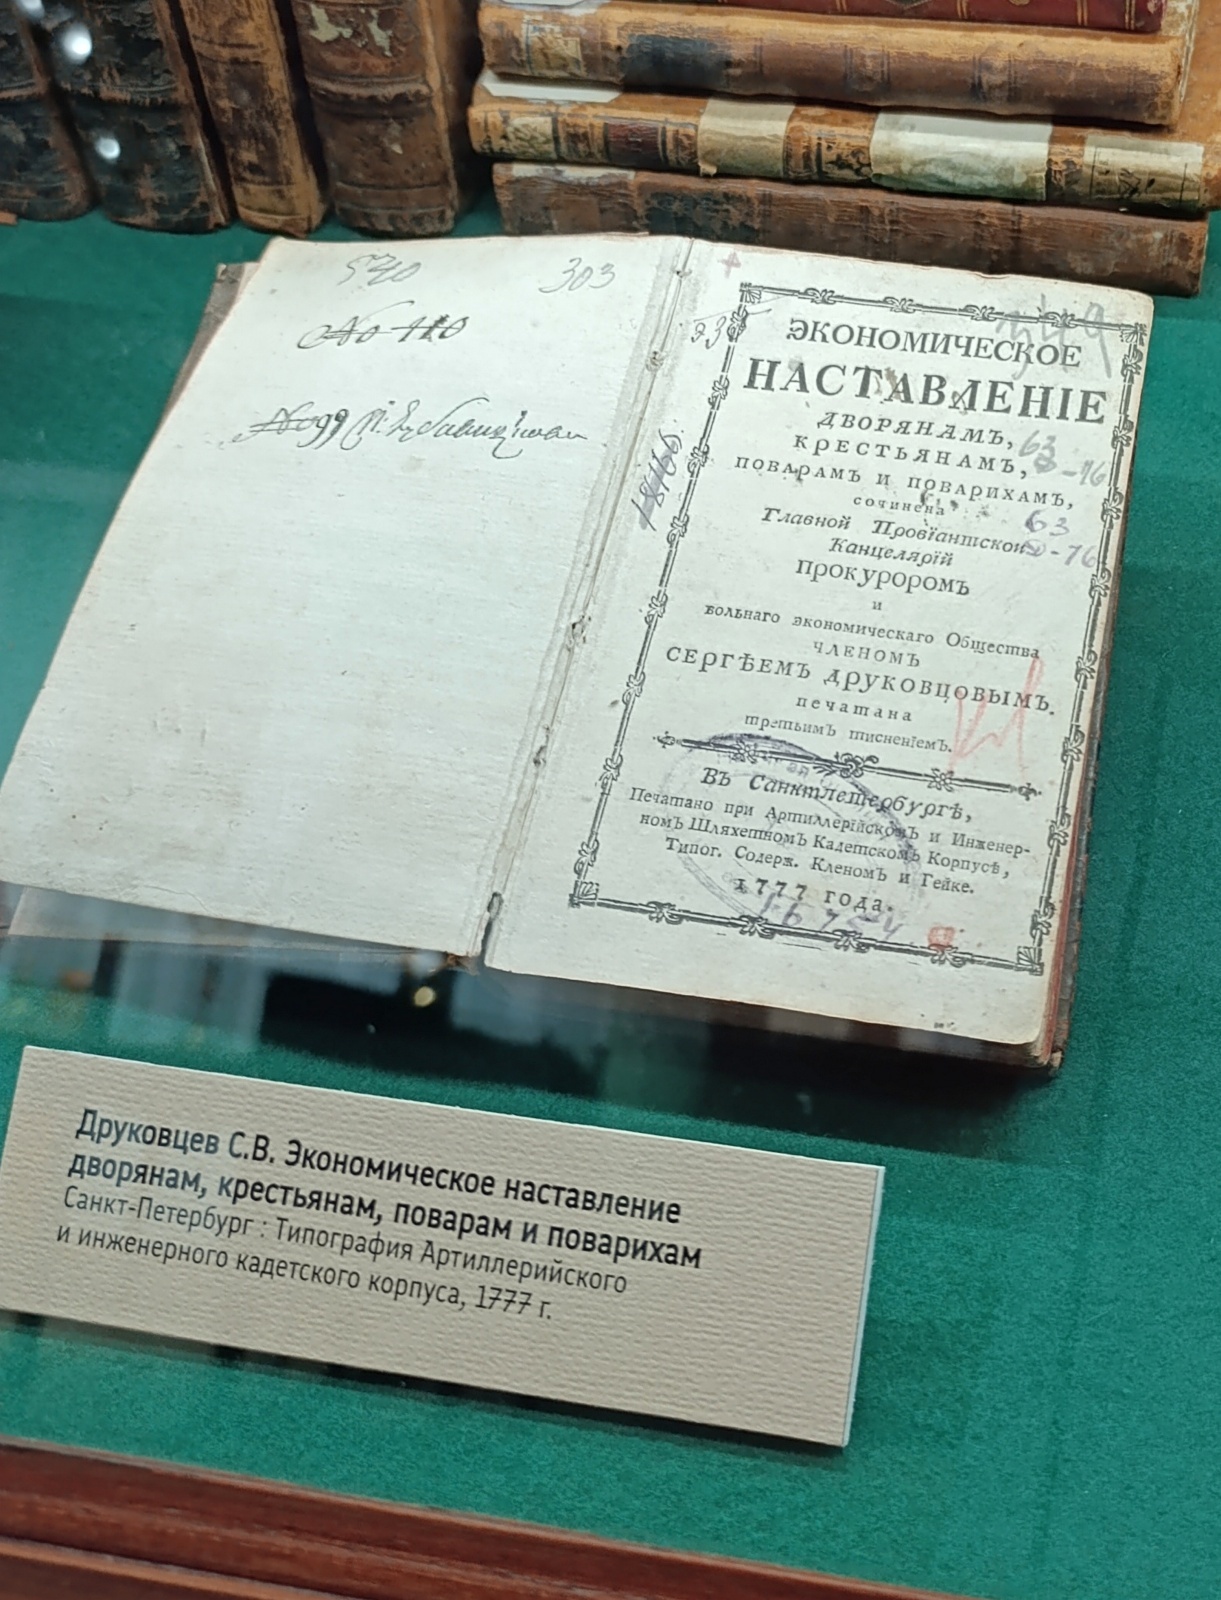 540
303
No 110
93
ЭКОНОМИЧЕСКОЕ
НАСТАВЛЕНІЕ
ДВОРЯНАМЪ,
КРЕСТЬЯНАМЪ,
ПОВАРАМЪ И ПОВАРИХАМЪ,
сочинена
Главной Провіантской
Канцелярій
прокуроромъ
и
вольнаго экономическаго Общества
членомъ
СЕРГѢЕМЪ ДРУКОВЦОВЫМЪ.
печатана
третьимъ тисненіемъ.
Въ Санктпетербургѣ,
Печатано при Артиллерійскомъ и Инженер-
номъ Шляхетномъ Кадетскомъ Корпусѣ,
Типог. Содерж. Кленомъ и Гейке.
1777 года.
63
-76
63
-76
Друковцев С.В. Экономическое наставление
дворянам, крестьянам, поварам и поварихам
Санкт-Петербург : Типография Артиллерийского
и инженерного кадетского корпуса, 1777 г.